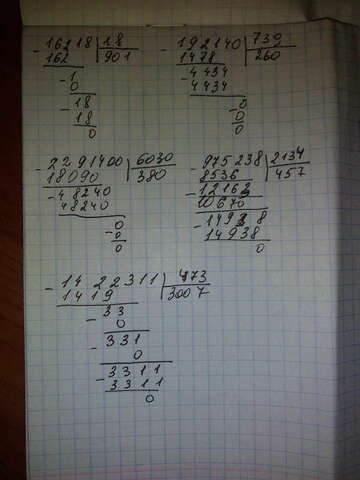 - 16218 | 18
162 | 901
- 1
0
- 18
18
0
- 192140 | 739
1478 | 260
- 4434
4434
- 0
0
0
- 2291400 | 6030
18090 | 380
- 48240
48240
0
- 0
0
- 975238 | 2134
8536 | 457
- 12163
10670
- 14938
14938
0
- 1422311 | 473
1419 | 3007
- 33
0
- 331
0
- 3311
3311
0